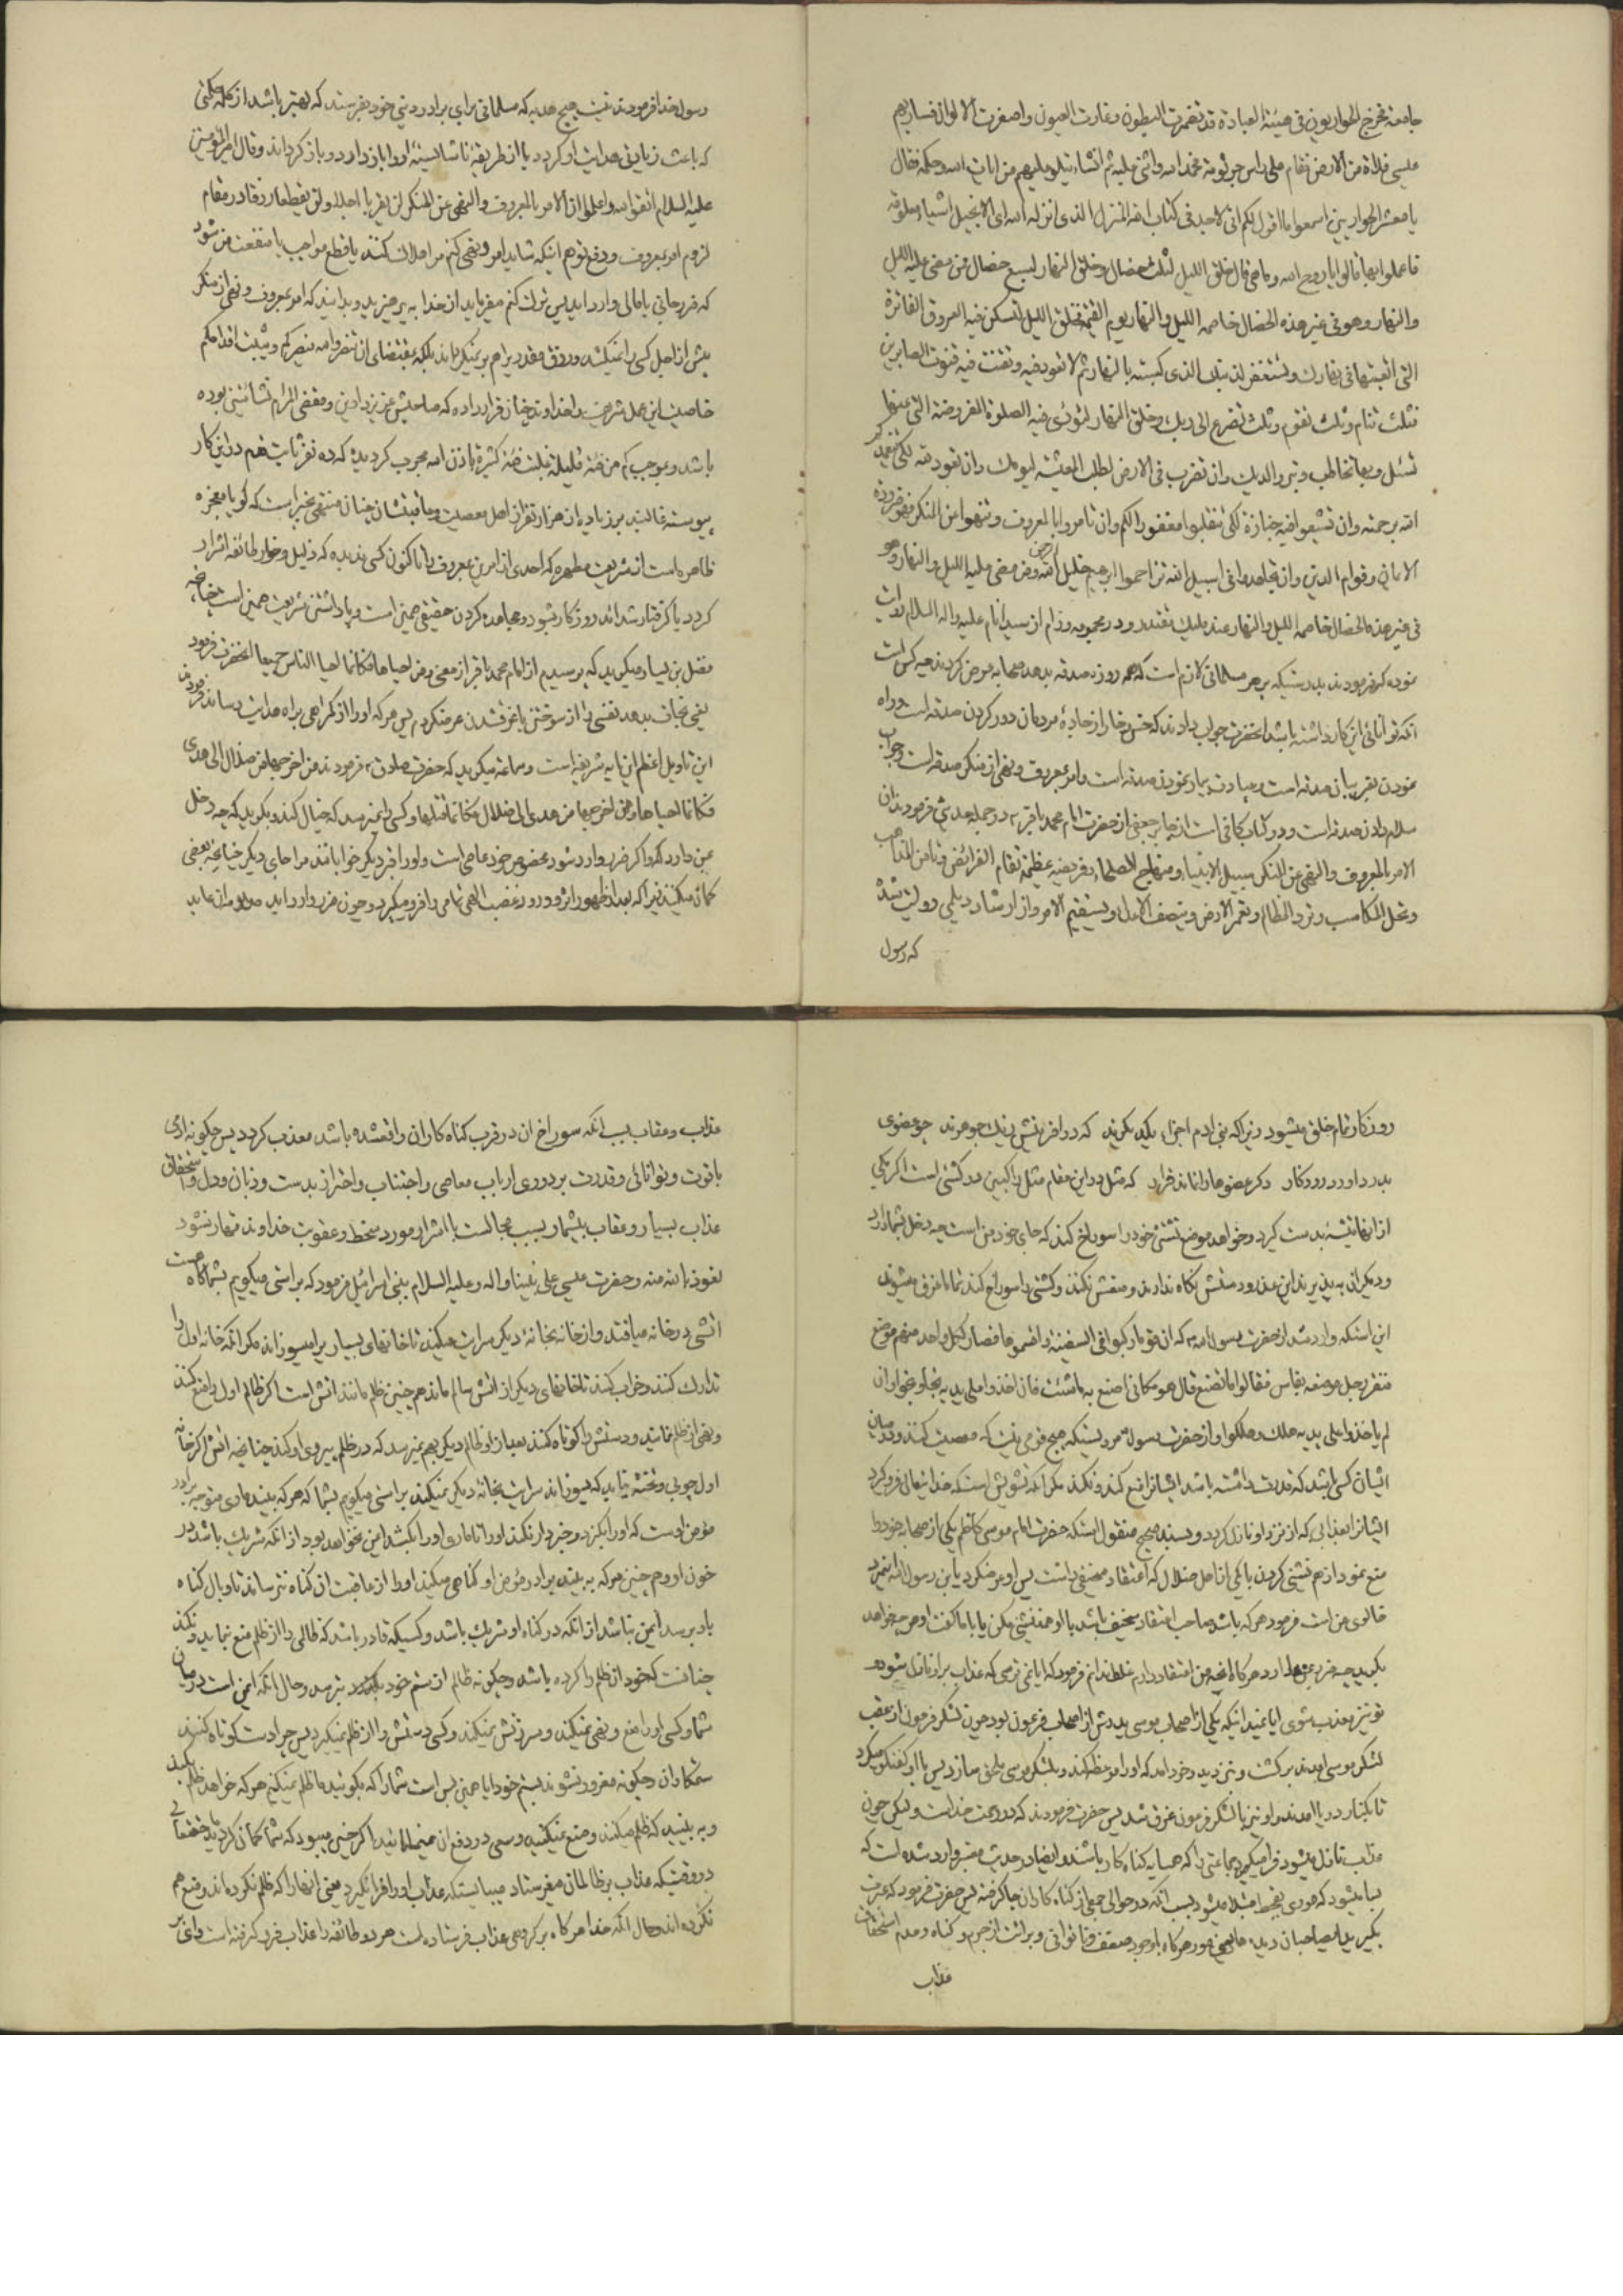 جامعة فخرج الحواریون فی هیئة العبادة قد تضمرت البطون و غارت العیون و اصفرت الالوان فسار بهم
عیسی فلاة من الارض فقام علی راس جرثومة فحمد الله و اثنی علیه ثم انشاء یتلو علیهم من ایات الله و حکمه فقال
یا معشر الحواریین اسمعوا ما اقول لکم انی لاجد فی کتاب الله المنزل الذی انزله الله ای الانجیل اشیاء معلومة
فاعملوا بها قالوا یا روح الله و ما هی قال خلق اللیل لثلث خصال و خلق النهار لسبع خصال فمن مضی علیه اللیل
و النهار و هو فی غیر هذه الخصال خاصمه اللیل و النهار یوم القیمة خلق اللیل لتسکن فیه العروق الفاترة
التی اتعبتها فی نهارك و تستغفر لذنبك الذی کسبته بالنهار ثم لا تعود فیه و تقنت فیه قنوت الصابرین
فثلث تنام و ثلث تقوم و ثلث تتضرع الی ربك و خلق النهار لتؤدی فیه الصلوة المفروضة التی عنها
تسئل و بها تخاطب و تبر والدیك و ان تضرب فی الارض لطلب المعیشة لیومك و ان تعود
الله برحمته و ان تشیعوا فیه جنازة لکی تنقلبوا مغفورا لکم و ان تامروا بالمعروف و تنهوا عن المنکر فهو ذروة
الایمان و قوام الدین و ان تجاهدوا فی سبیل الله تزاحموا ابرهیم خلیل الرحمن و من مضی علیه اللیل و النهار و هو
فی غیر هذه الخصال خاصمه اللیل و النهار عند ملیك مقتدر و در از سید انام علیه و اله السلام روایت
نموده که فرمودند بدرستیکه بر هر مسلمانی لازم است که همه روزه صدقه بدهد صحابه عرض کردند چه کس است
آنکه توانائی این کار داشته باشد انحضرت جواب دادند که خس و خار از جادۀ مردمان دور کردن صدقه است و راه
نمودن بغریبان صدقه است و عیادت بیمار نمودن صدقه است و امر بمعروف و نهی از منکر صدقه است و جواب
سلام دادن صدقه است و در کتاب کافی است از جابر جعفی از حضرت امام محمد باقر در جمله حدیثی فرمودند ان
الامر بالمعروف و النهی عن المنکر سبیل الانبیاء و منهاج الصلحاء فریضة عظیمة تقام الفرائض و تامن المذاهب
و تحل المکاسب و ترد المظالم و تعمر الارض و ینتصف و یستقیم الامر و از ارشاد دیلمی روایت شده
که رسول
رسول خدا فرمودند نیست هیچ هدیه که مسلمانی برای برادر دینی خود بفرستد که بهتر باشد از کلمه حکمتی
که باعث زیادتی هدایت او گردد یا از طریقۀ ناشایسته او را باز دارد و باز گرداند و قال امیر المؤمنین
علیه السلام اتقوا الله و اعلموا ان الامر بالمعروف و النهی عن المنکر لن یقربا اجلا و لن یقطعا رزقا در مقام
لزوم امر بمعروف و دفع توهم اینکه شاید امر و نهی کنم مرا هلاك کنند یا قطع مواجب یا منفعت من شود
که ضرر جانی یا مالی وارد آید پس ترك کنم میفرماید از خدا بپرهیزید و بدانید که امر بمعروف و نهی از منکر
پیش از اجل کسی را نمیکشد و رزق مقدر را هم بلکه بمقتضای ان تنصروا الله ینصرکم و یثبت اقدامکم
خاصیت این عمل شریف را خداوند چنان قرار داده که صاحبش عزیز دارین و مقضی المرام نشأتین بوده
باشد و بموجب کم من فئة قلیلة غلبت فئة کثیرة باذن الله مجرب گردیده که ده نفر ثابت قدم در این کار
پیوسته غالبند بر زیاده از هزار نفر از اهل معصیت و عاقبتشان چنان منتهی بخیر است که گویا معجزه
ظاهره است از شریعت مطهره که احدی از امرین بمعروف را تا کنون کسی ندیده که ذلیل و خوار طائفه اشرار
گردد یا گرفتار شدائد روزگار بشود و مجاهده کردن حقیقی همین است و پا داشتن شریعت همین است چنانچه
فضل بن یسار میگوید که پرسیدم از امام محمد باقر از معنی و من احیاها فکانما احیا الناس جمیعا انحضرت فرمود
یعنی نجات بدهد نفسی را از سوختن یا غرق شدن عرض کردم پس هر که او را از گمراهی براه هدایت رساند فرمودند
این تاویل اعظم این ایه شریفه است و سماعه میگوید که حضرت صادق فرمودند من اخرجها من ضلال الی هدی
فکانما احیاها و من اخرجها من هدی الی ضلال فکانما قتلها و کسی را نمیرسد که خیال کند و بگوید که چه دخل
بمن دارد که اگر ضرر وارد شود بخصوص خود عاصی است و او را فردیگر خواباند مرا جای دیگر چنانچه بعضی
گمان میکنند زیرا که بعد از ظهور اثر و ورود غضب الهی تمامی را فرو میگیرد و چون ضرر وارد اید
روزگار تمام خلق میشود زیرا که بنی ادم اجزاء یکدیگرند که در افرینش ز یك جوهرند چو عضوی
بدرد اورد روزگار دگر عضوها را نماند قرار که مثل در این مقام مثل راکبین در کشتی است اگر یکی
از انها تیشه بدست گیرد و خواهد موضع نشستن خود را سوراخ کند که جای خود من است چه دخل بشما دارد
و دیگران بپذیرند این عذر و دستش نگاه ندارند و منعش نکنند و کشتی را سوراخ کند تماما غرق میشوند
این استکه وارد شد از حضرت رسول که ان قوما رکبوا فی السفینة و اقتسموها فصار لکل واحد منهم موضع
فنقر رجل موضعه بفاس فقالوا ما تصنع قال هو مکانی اصنع به ما شئت فان اخذوا علی یدیه نجا و نجوا و ان
لم یاخذوا علی یدیه هلك و هلکوا و از حضرت رسول مرویستکه هیچ قومی نیست که معصیت کنند و در میان
ایشان کسی باشد که قدرت داشته باشد ایشانرا منع کند و نکند مگر انکه تشویش است که خدایتعالی فرو گیرد
ایشانرا بعذابی که از نزد او نازل گردد و بسند صحیح منقول استکه حضرت امام موسی کاظم یکی از صحابه خود را
منع نمود از هم نشینی کردن با یکی از اهل ضلال که اعتقاد سخیفی داشت پس او عرض کرد یا بن رسول الله
خالوی من است فرمود هر که باشد صاحب اعتقاد سخیف باشد با او همنشینی مکن یا با ما کفت او هر چه خواهد
بگوید چه ضرر بمن دارد هر گاه انچه من اعتقاد دارم غلط ندانم فرمود که ایا نمی ترسی که عذاب بر او نازل شود
تو نیز معذب شوی ایا نمیدانی که یکی از اصحاب موسی پدرش از اصحاب فرعون بود چون لشکر فرعون از عقب
لشکر موسی امدند برگشت و نزد پدر خود امد که او را موعظه کند و بلشکر موسی ملحق سازد پس با او گفتگو میکرد
تا بکنار دریا امدند و او نیز با لشکر فرعون غرق شد پس حضرت فرمودند که در رحمت خداست و لیکن چون
عذاب نازل میشود فرا میگیرد جماعتی را که همسایه گناه کار باشند و ایضا در حدیث معتبر وارد شده است که
بسا میشود که موری بقحط مبتلا میشود بسبب انکه در حوالی جمعی از گناه کاران جا گرفته پس حضرت فرمود که عبرت
بگیرید ای صاحبان دیده هر گاه با وجود ضعف و ناتوانی و برائت از جرم و گناه و عدم استحقاق
عذاب
عذاب و عقاب بسبب انکه سوراخ ان در قرب گناه کاران واقع شده باشد معذب گردد پس چگونه ادمی
با قوت و توانائی و قدرت بر دوری ارباب معاصی و اجتناب و احتراز بدست و زبان و دل و استحقاق
عذاب بسیار و عقاب بیشمار بسبب مجالست با اشرار مورد سخط و عقوبت خداوند قهار نشود
نعوذ بالله منه و حضرت عیسی علی نبینا و اله و علیه السلام ببنی اسرائیل فرمود که براستی میگویم بشما گاه هست
اتشی در خانه میافتد و از خانه بخانۀ دیگر سرایت میکند تا خانهای بسیار را میسوزاند مگر انکه خانه اول را
تدارك کنند و خراب کنند تا خانهای دیگر از اتش سالم ماند همچنین ظلم مانند اتش است اگر ظالم اول را منع کنند
و نهی از ظلم نمایند و دستش را کوتاه کنند بعد از او ظالم دیگر بهم نمیرسد که در ظلم پیروی او کند چنانچه اتش اگر خانه
اول چوبی و تخته نیابد که بسوزاند سرایت بخانۀ دیگر نمیکند براستی میگویم بشما که هر که ببیند ماری متوجه برادر
مؤمن اوست که او را بگزد و خبردار نکند او را تا مار او را بکشد ایمن نخواهد بود از انکه شریك باشد در
خون او و همچنین هر که ببیند برادر مؤمن او گناهی میکند او را از عاقبت ان گناه نترساند تا وبال گناه
باو برسد ایمن نباشد از انکه در گناه او شریك باشد و کسیکه قادر باشد که ظالمی را از ظلم منع نماید و نکند
چنانست که خود ان ظلم را کرده باشد و چگونه ظالم از ستم خود بترسد و حال انکه ایمن است در میان
شما و کسی او را منع و نهی نمیکند و سرزنش نمیکند و کسی دستش را از ظلم نمیگیرد پس چرا دست کوتاه کنند
ستمکاران و چگونه مغرور نشوند بستم خود ایا همین بس است شما را که بگوئید ما ظلم نمیکنیم هر که خواهد ظلم بکند
و ببینید که ظلم میکنند و منع نمیکنید و سعی در دفع ان نمینمائید اگر چنین میبود که شما گمان کرده اید حقتعالی
در وقتیکه عذاب بر ظالمان میفرستاد میبایستکه عذاب او را فرا نگیرد یعنی انهارا که ظلم نکرده اند و منع هم
نکرده اند و حال انکه خدا هر گاه بر گروهی عذاب فرستاده است هر دو طائفه را عذاب فرو گرفته است